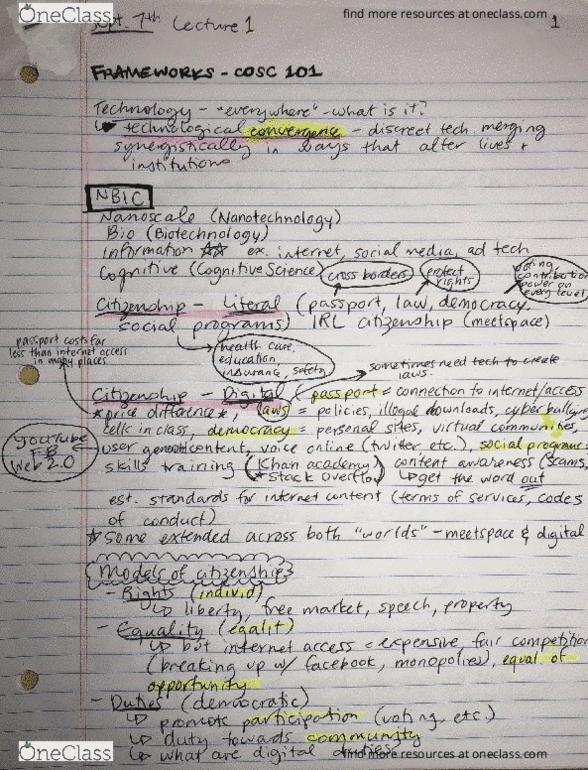 OneClass
find more resources at oneclass.com
Sept. 7th Lecture 1
1
FRAMEWORKS - COSC 101
Technology - "everywhere" - what is it?
↳ technological convergence - discreet tech merging
synergistically in ways that alter lives +
institutions
NBIC
Nanoscale (Nanotechnology)
Bio (Biotechnology)
Information ☆☆ ex. internet, social media, ad tech
Cognitive (Cognitive Science)
cross borders
protect
rights
voting,
contribution
power on
every level
Citizenship - Literal (passport, law, democracy,
social programs) IRL citizenship (meetspace)
passport costs far
less than internet access
in many places
health care,
education,
insurance, safety
sometimes need tech to create
laws.
Citizenship - Digital (passport = connection to internet/access
*price difference*, laws = policies, illegal downloads, cyberbullying
cells in class, democracy = personal sites, virtual communities,
YouTube
FB
Web 2.0
user content, voice online (twitter etc.), social programs =
skills training (Khan academy) content awareness (scams,
*Stack Overflow
↳ get the word out
est. standards for internet content (terms of services, codes
of conduct)
☆ some extended across both "worlds" - meetspace & digital
Models of citizenship
- Rights (individ)
↳ liberty, free market, speech, property
- Equality (egalit)
↳ but internet access = expensive, fair competition
(breaking up w/ facebook, monopolies), equal of
opportunity
- Duties (democratic)
↳ promote participation (voting, etc.)
↳ duty towards community
↳ what are digital duties
OneClass
find more resources at oneclass.com